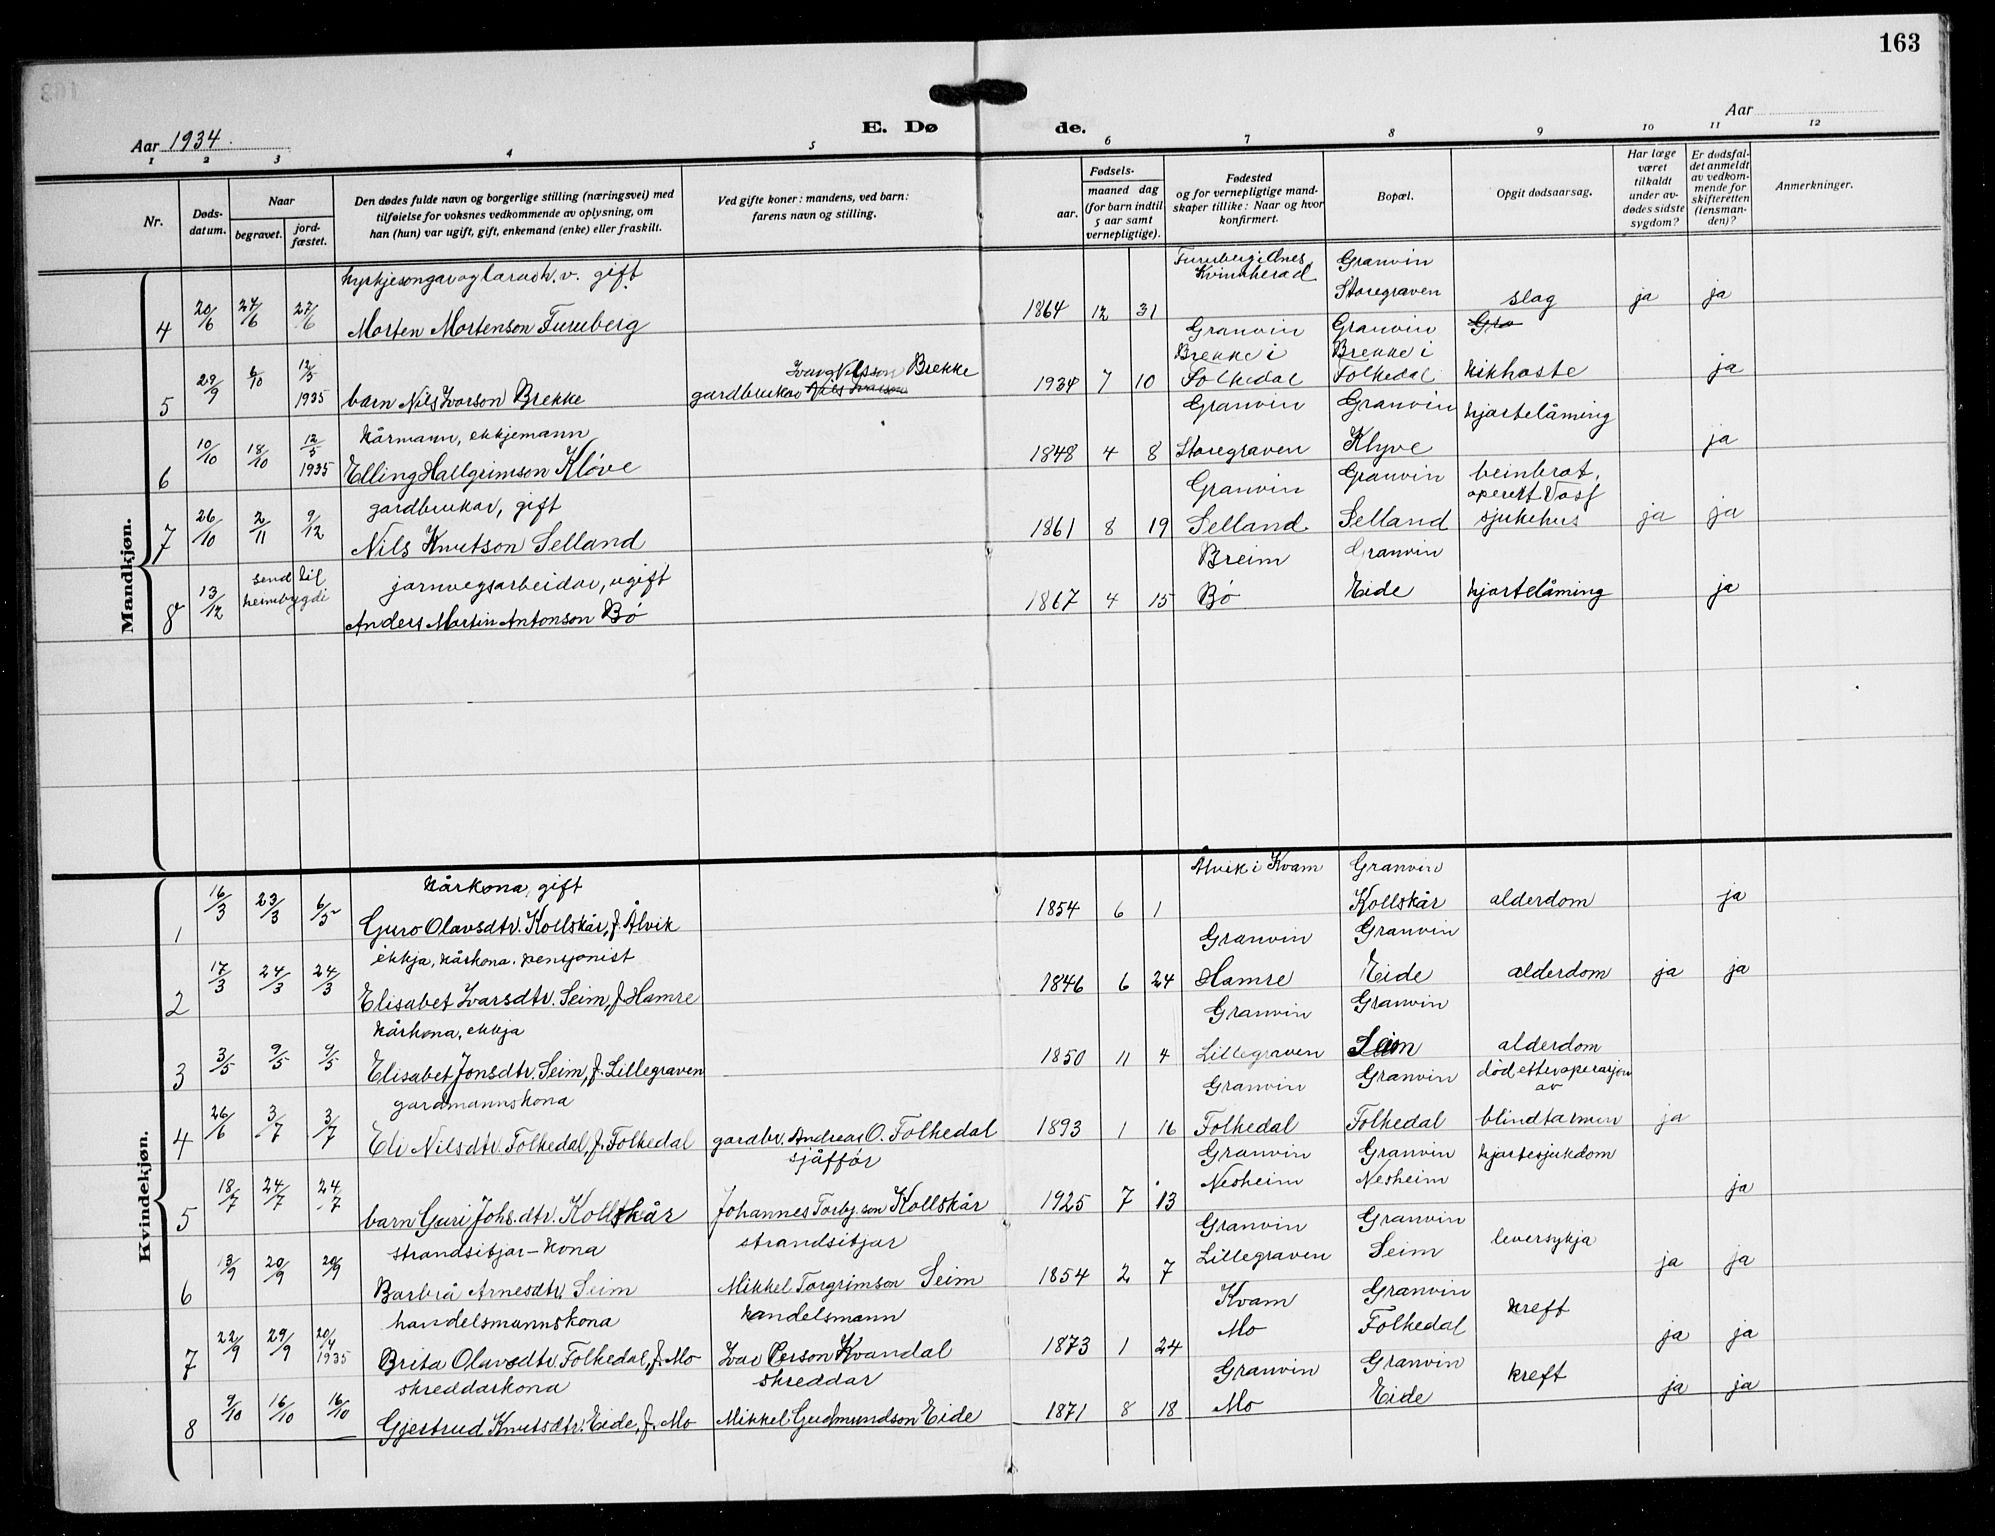 163
Aar 1934.
E. Dø
de.
Aar
1 2 3 4 5 6 7 8 9 10 11 12
Nr.
Døds-
datum.
Naar
begravet.
jord-
fæstet.
Den dødes fulde navn og borgerlige stilling (næringsvei) med
tilføielse for voksnes vedkommende av oplysning, om
han (hun) var ugift, gift, enkemand (enke) eller fraskilt.
Ved gifte koner: mandens, ved barn:
farens navn og stilling.
Fødsels-
aar.
maaned dag
(for barn indtil
5 aar samt
vernepligtige).
Fødested
og for vernepligtige mand-
skaper tillike: Naar og hvor
konfirmert.
Bopæl.
Opgit dødsaarsag.
Har læge
været
tilkaldt
under av-
dødes sidste
sygdom?
Er dødsfal-
det anmeldt
av vedkom-
mende for
skifteretten
(lensman-
den)?
Anmerkninger.
Mandkjøn.
kyrkjesongar og lærar h.v. gift
Furuberg i Ænes Granvin
Kvinnherad
4 20/6 27/6 27/6 Morten Mortenson Furuberg 1864 12 31 Storegraven slag ja ja
Granvin Granvin Gra
Ivar Nilsson Brekke Brekke i Brekke i
5 29/9 6/10 12/5 1935 barn Nils Ivarson Brekke gardbrukar Nils Ivarson 1934 7 10 Folkedal Folkedal kikhoste ja
kårmann, ekkjemann Granvin Granvin hjartelåming
6 10/10 18/10 12/5 1935 Elling Hallgrimson Kløve 1848 4 8 Storegraven Klyve ja
gardbrukar, gift Granvin Granvin beinbrot,
operert Voss
7 26/10 2/11 9/12 Nils Knutson Selland 1861 8 19 Selland Selland sjukehus ja ja
jarnvegsarbeidar, ugift Breim Granvin
8 13/12 send til heimbygdi Anders Martin Antonson Bø 1867 4 15 Bø Eide hjartelåming ja
Kvindekjøn.
kårkona, gift Ålvik i Kvam Granvin
1 16/3 23/3 6/5 Guro Olavsdtr. Kollskår, f. Ålvik 1854 6 1 Kollskår alderdom ja
ekkja, kårkona, pensjonist Granvin Granvin
2 17/3 24/3 24/3 Elisabet Ivarsdtr. Seim, f. Hamre 1846 6 24 Hamre Eide alderdom ja ja
kårkona, ekkja Granvin Granvin
3 3/5 9/5 9/5 Elisabet Jonsdtr. Seim, f. Lillegraven 1850 11 4 Lillegraven Seim alderdom
gardmannskona Granvin Granvin død etter operasjon
av
4 26/6 3/7 3/7 Eli Nilsdtr. Folkedal, f. Folkedal gardbr. Andreas O. Folkedal 1893 1 16 Folkedal Folkedal blindtarmen ja
sjåffør Granvin Granvin hjartesjukdom
5 18/7 24/7 24/7 barn Guri Johs.dtr. Kollskår Johannes Torbj.son Kollskår 1925 7 13 Nesheim Nesheim ja
strandsitjar-kona strandsitjar Granvin Granvin leversykja
6 13/9 20/9 20/9 Barbrå Arnesdtr. Seim Mikkel Torgrimson Seim 1854 2 7 Lillegraven Seim ja ja
handelsmannskona handelsmann Kvam Granvin kreft
7 22/9 29/9 20/4 1935 Brita Olavsdtr. Folkedal, f. Mo Ivar Person Kvandal 1873 1 24 Mo Folkedal ja ja
skreddarkona skreddar Granvin Granvin kreft
8 9/10 16/10 16/10 Gjertrud Knutsdtr. Eide, f. Mo Mikkel Gudmundson Eide 1871 8 18 Mo Eide ja ja